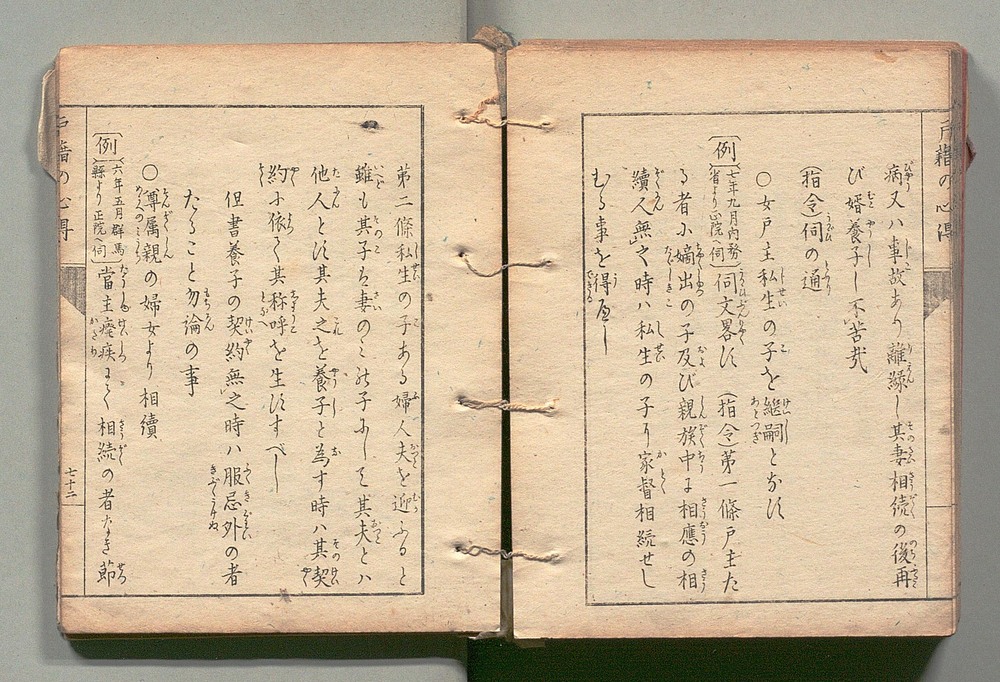 戸籍の心得
病又ハ事故あり離縁し其妻相続の後再
び婿養子し不苦哉
(指令)伺の通
○女戸主私生の子を継嗣となす
例 七年九月内務省より正院へ伺 伺文畧す (指令)第一條戸主た
る者小嫡出の子及び親族中に相應の相
續人無之時ハ私生の子り家督相続せし
むる事を得べし
第二條私生の子ある婦人夫を迎ふると
雖も其子ろ妻のミの子ふして其夫とハ
他人とす其夫之を養子と為す時ハ其契
約小依て其称呼を生ずすべし
但書養子の契約無之時ハ服忌外の者
たること勿論の事
○尊属親の婦女より相續
例 六年五月群馬縣より正院へ伺 當主癈疾にて相続の者なき節
戸籍の心得
七十二